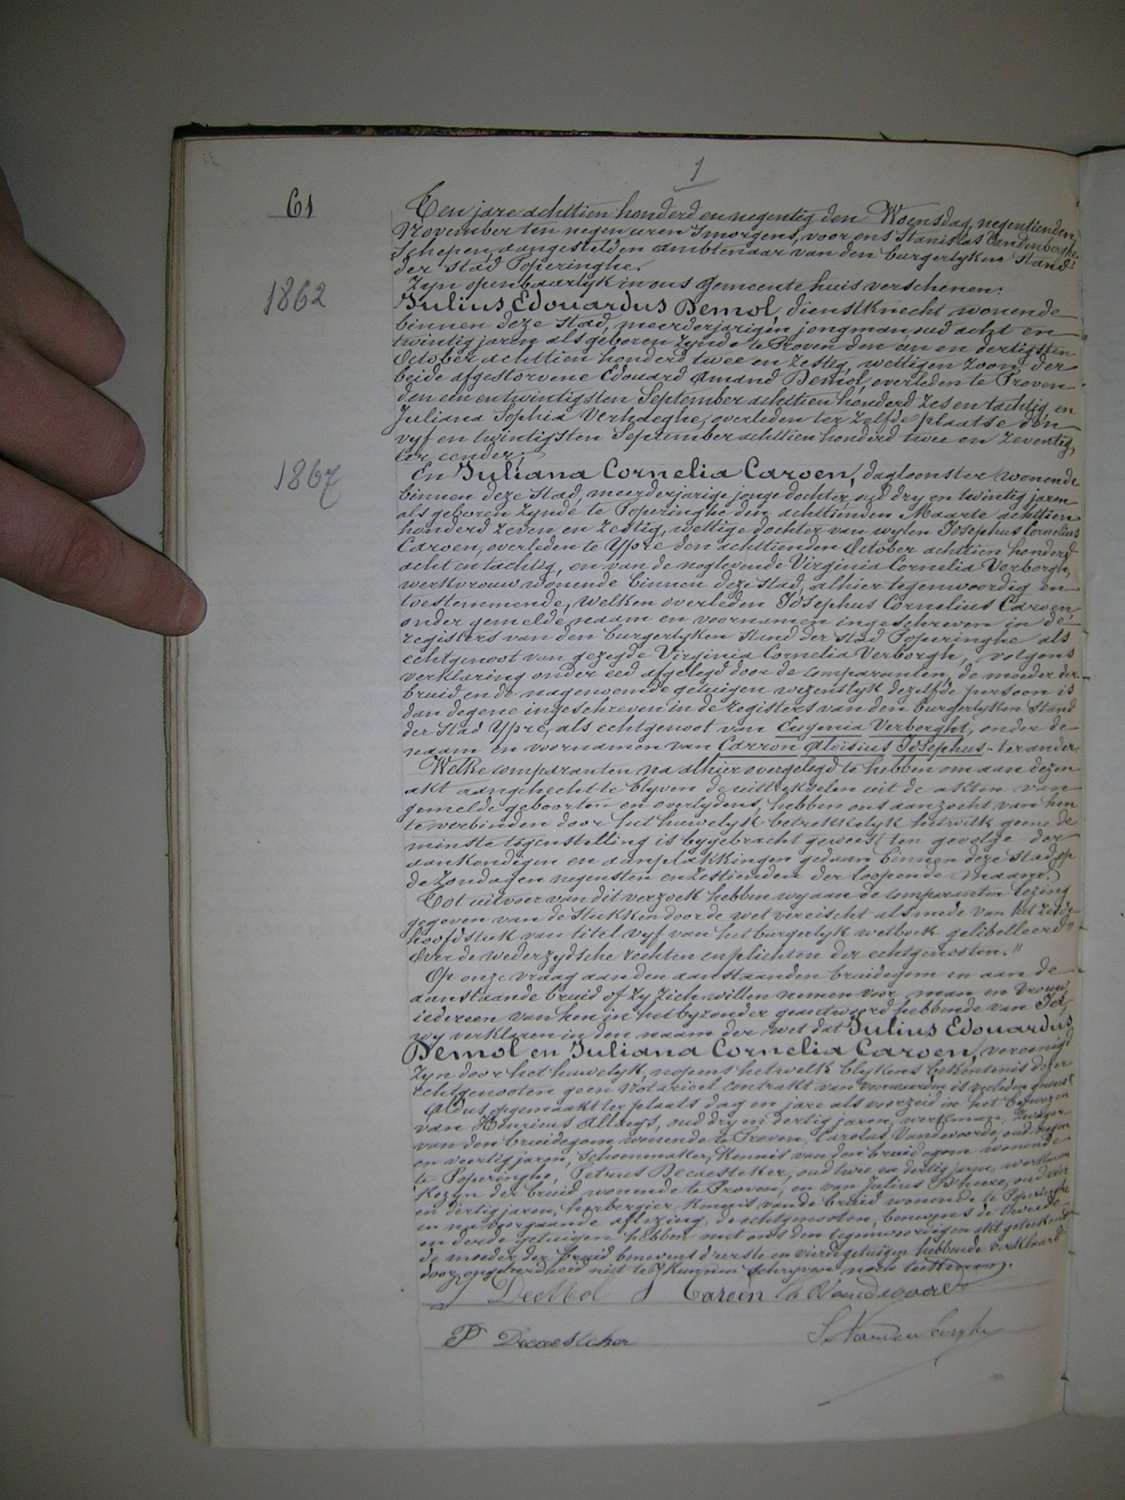 1
61
Ten jare achttien honderd en negentig den Woensdag, negentienden
November ten negen uren 's morgens, voor ons Stanislas Vandenberghe
Schepen, aangestelden ambtenaar van den burgerlyken stand
der stad Poperinghe.
Zyn openbaarlyk in ons gemeentehuis verschenen:
1862
Julius Edouardus Demol, dienstknecht wonende
binnen deze stad, meerderjarigen jongman oud acht en
twintig jaren als geboren zynde te Proven den een en dertigsten
October achttien honderd twee en zestig, wettigen zoon der
beide afgestorvene Edouard Amand Demol, overleden te Proven
den een en twintigsten September achttien honderd zes en tachtig en
Juliana Sophia Verhaeghe, overleden ter zelfde plaatse den
vyf en twintigsten September achttien honderd twee en zeventig,
ter eender;
1867
En Juliana Cornelia Caroen, dagloonster wonende
binnen deze stad, meerderjarige jonge dochter, oud dry en twintig jaren
als geboren zynde te Poperinghe den achttienden Maarte achttien
honderd zeven en zestig, wettige dochter van wylen Josephus Cornelius
Caroen, overleden te Ypre den achttienden October achttien honderd
acht en tachtig, en van de noglevende Virginia Cornelia Verborgh,
werkvrouw wonende binnen deze stad, alhier tegenwoordig en
toestemmende, Welken overleden Josephus Cornelius Caroen,
onder gemelde naam en voornamen ingeschreven in de
registers van den burgerlyken stand der stad Poperinghe als
echtgenoot van gezegde Virginia Cornelia Verborgh, volgens
verklaring onder eed afgelegd door de comparanten, de moeder der
bruid en de nagenoemde getuigen wezentlyk dezelfde persoon is
dan degene ingeschreven in de registers van den burgerlyken stand
der stad Ypre, als echtgenoot van Eugenia Verborght, onder de
naam en voornamen van Carron Aloisius Josephus - ter ander
Welke comparanten na alhier overgelegd te hebben om aan dezen
akt aangehecht te blyven de uittreksels uit de akten van
gemelde geboorten en overlydens, hebben ons aanzocht van hen
te verbinden door het huwelyk betrekkelyk hetwelk geene de
minste tegenstelling is bygebracht geweest ten gevolge der
aankondigen en aanplakkingen gedaan binnen deze stad op
de Zondagen negensten en zestienden der loopende maand.
Tot uitvoer van dit verzoek hebben wy aan de comparanten lezing
gegeven van de stukken door de wet vereischt alsmede van het zesde
hoofdstuk van titel vyf van het burgerlyk wetboek gelibelleerd "
Over de wederzydsche rechten en plichten der echtgenoten."
Op onze vraag aan den aanstaanden bruidegom en aan de
aanstaande bruid of zy zich willen nemen voor man en vrouw,
iedereen van hen in het byzonder geantwoord hebbende van Ja,
wy verklaren in den naam der wet dat Julius Edouardus
Demol en Juliana Cornelia Caroen, vereenigd
zyn door het huwelyk, nopens hetwelk blykens bekentenis dezer
echtgenooten geen notarieel contrakt van voorwaarden is verleden geweest
Aldus opgemaakt ter plaats dag en jare als voorzeid in het bywezen
van Henricus oud dry en dertig jaren, werkman, zwager
van den bruidegom, wonende te Proven, Carolus Vandevoorde, oud
en veertig jaren, schoenmaker, kennis van den bruidegom wonende
te Poperinghe, Petrus Decaesteker, oud twee en dertig jaren, werkman
kozyn der bruid, wonende te Proven, en van Julius oud
en dertig jaren, herbergier, kennis van de bruid wonende te Poperinghe
en na voorgaande aflezing, de echtgenooten, benevens de tweede
en derde getuigen hebben met ons den tegenwoordigen akt geteekend
de moeder der bruid benevens d'eerste en vierde getuigen hebbende verklaard
door ongeleerdheid niet te kunnen schryven noch teekenen.
J DeMol J Caroen C Vandevoorde
P Decaesteker S Vandenberghe